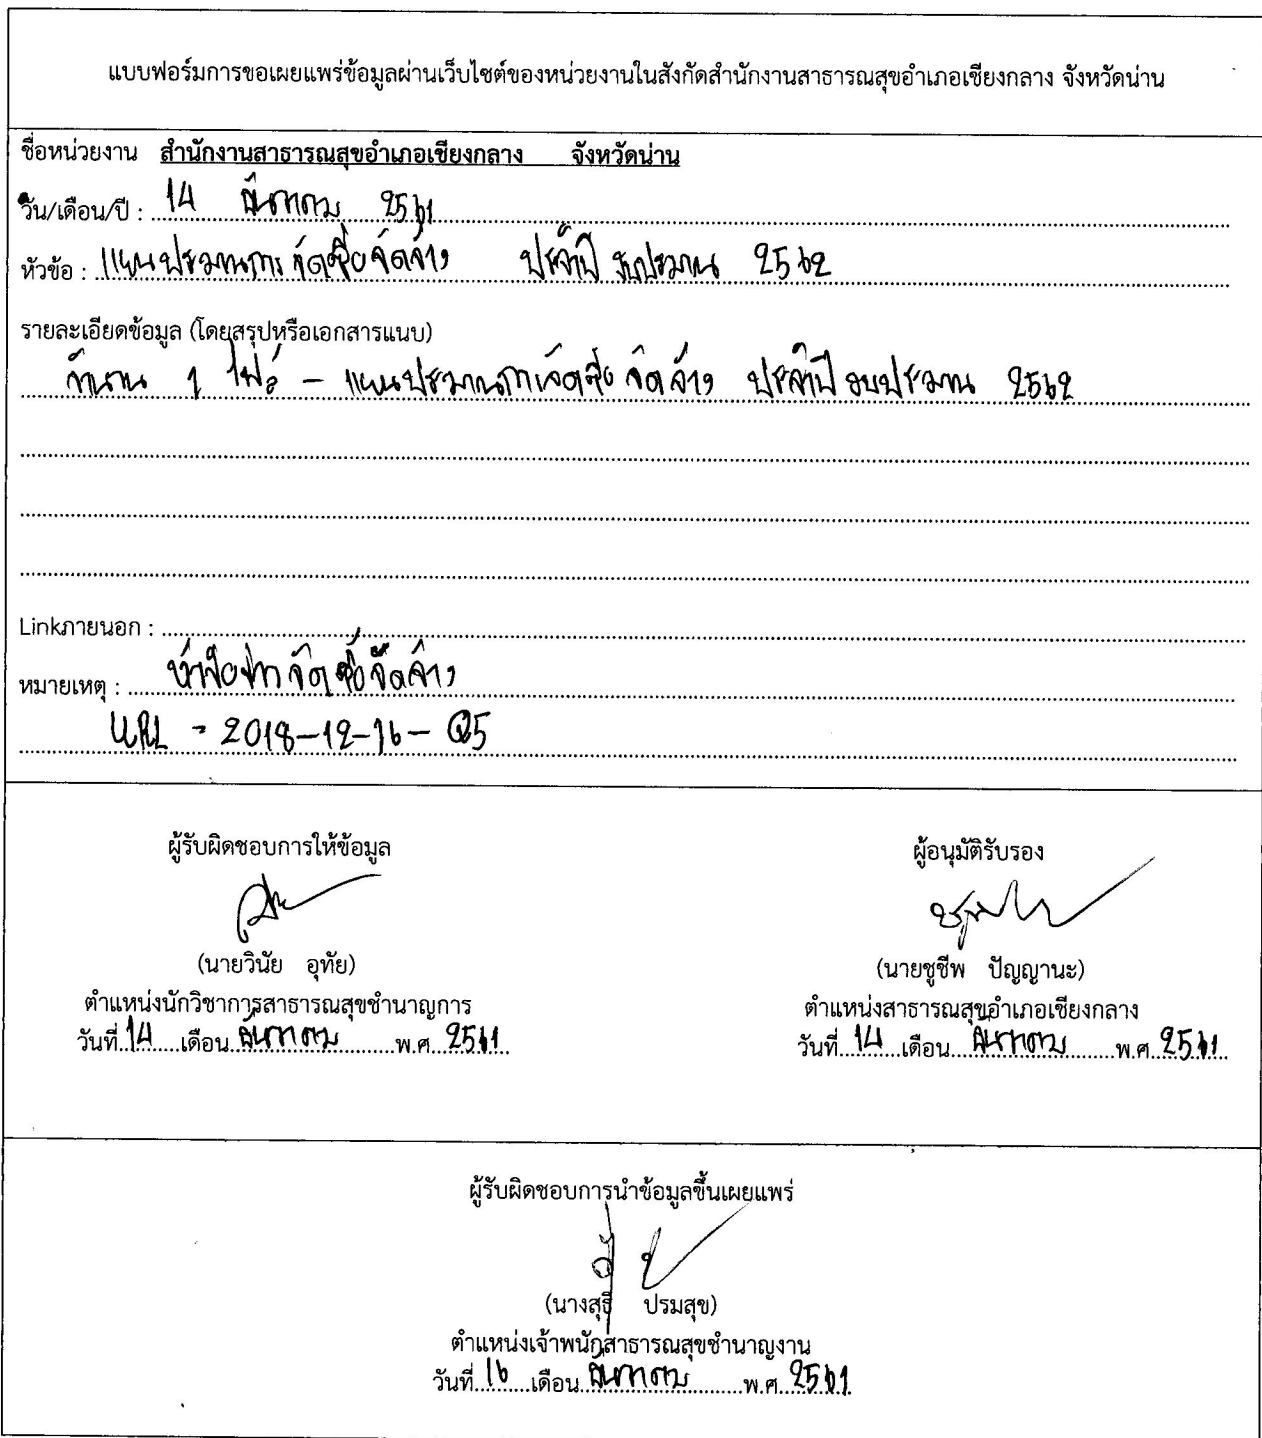 แบบฟอร์มการขอเผยแพร่ข้อมูลผ่านเว็บไซต์ของหน่วยงานในสังกัดสำนักงานสาธารณสุขอำเภอเชียงกลาง จังหวัดน่าน
ชื่อหน่วยงาน สำนักงานสาธารณสุขอำเภอเชียงกลาง จังหวัดน่าน
วัน/เดือน/ปี : 14 ธันวาคม 2561
หัวข้อ : แผนประมาณการจัดซื้อจัดจ้าง ประจำปี งบประมาณ 2562
รายละเอียดข้อมูล (โดยสรุปหรือเอกสารแนบ)
จำนวน 1 ไฟล์ - แผนประมาณการจัดซื้อ จัดจ้าง ประจำปี งบประมาณ 2562
Linkภายนอก :
หมายเหตุ : จัดซื้อจัดจ้าง
URL - 2018-12-16-05
ผู้รับผิดชอบการให้ข้อมูล
(นายวินัย อุทัย)
ตำแหน่งนักวิชาการสาธารณสุขชำนาญการ
วันที่ 14 เดือน ธันวาคม พ.ศ. 2561
ผู้อนุมัติรับรอง
(นายชูชีพ ปัญญานะ)
ตำแหน่งสาธารณสุขอำเภอเชียงกลาง
วันที่ 14 เดือน ธันวาคม พ.ศ. 2561
ผู้รับผิดชอบการนำข้อมูลขึ้นเผยแพร่
(นางสุธี ปรมสุข)
ตำแหน่งเจ้าพนักสาธารณสุขชำนาญงาน
วันที่ 16 เดือน ธันวาคม พ.ศ. 2561